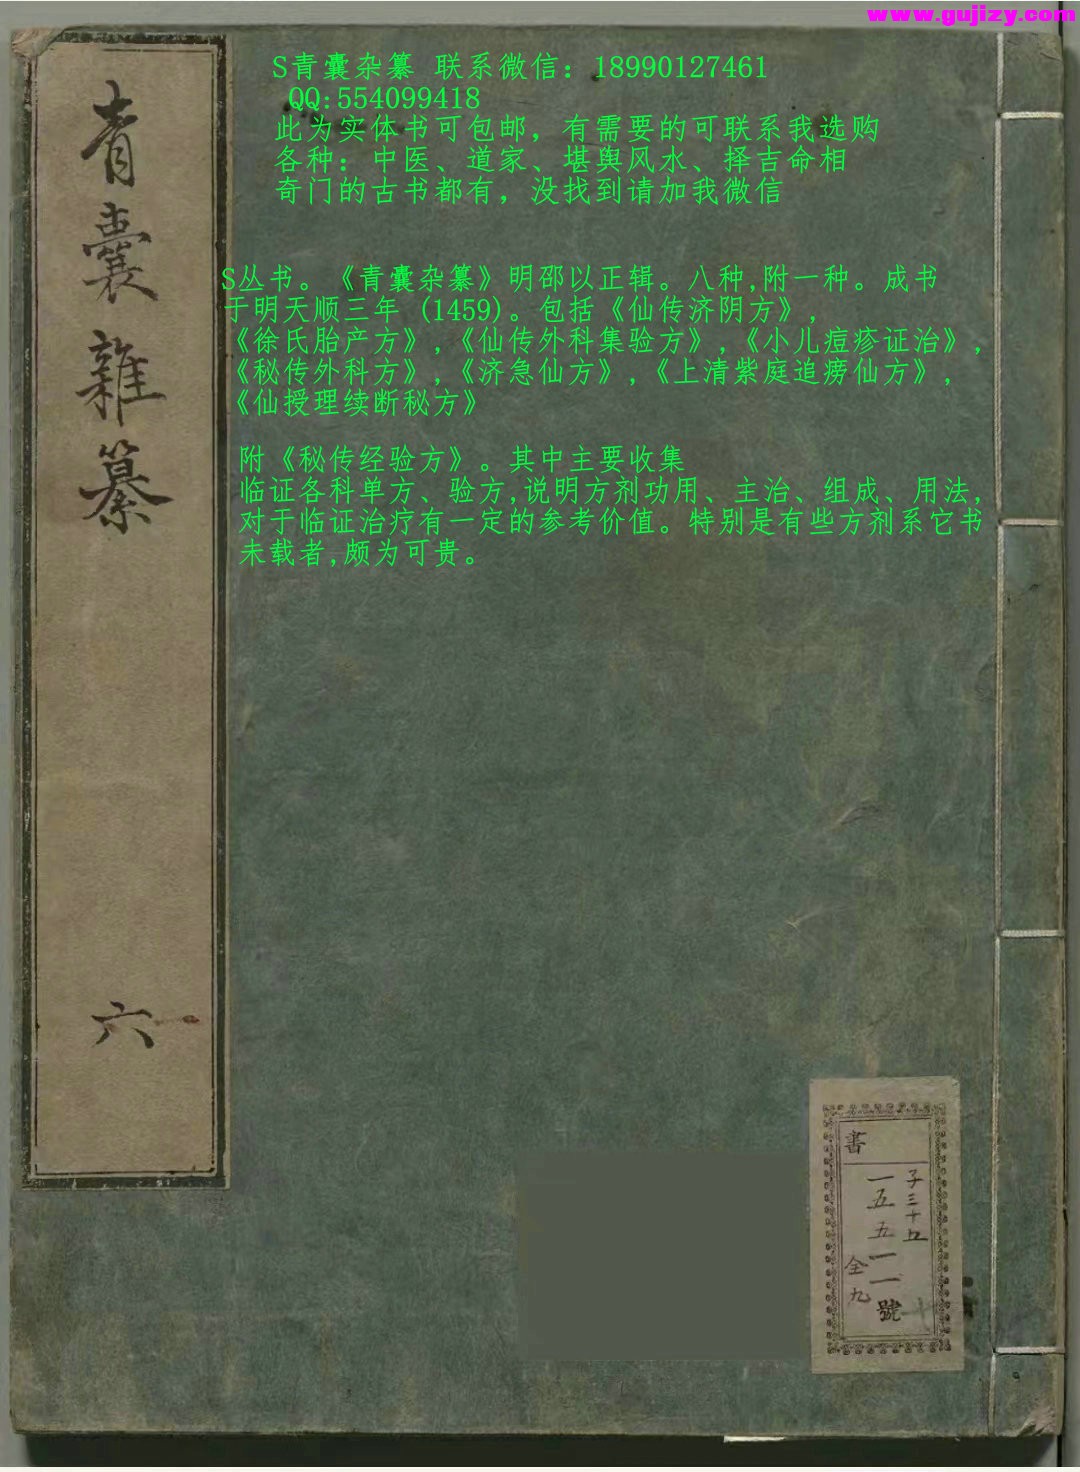 www.gujizy.com
S青囊杂纂 联系微信：18990127461
QQ:554099418
此为实体书可包邮，有需要的可联系我选购
各种：中医、道家、堪舆风水、择吉命相
奇门的古书都有，没找到请加我微信
S丛书。《青囊杂纂》明邵以正辑。八种,附一种。成书
于明天顺三年 (1459)。包括《仙传济阴方》,
《徐氏胎产方》,《仙传外科集验方》,《小儿痘疹证治》,
《秘传外科方》,《济急仙方》,《上清紫庭追痨仙方》,
《仙授理续断秘方》
附《秘传经验方》。其中主要收集
临证各科单方、验方,说明方剂功用、主治、组成、用法,
对于临证治疗有一定的参考价值。特别是有些方剂系它书
未载者,颇为可贵。
青囊雜纂
六
書
子三十五
一五五一一號
全九